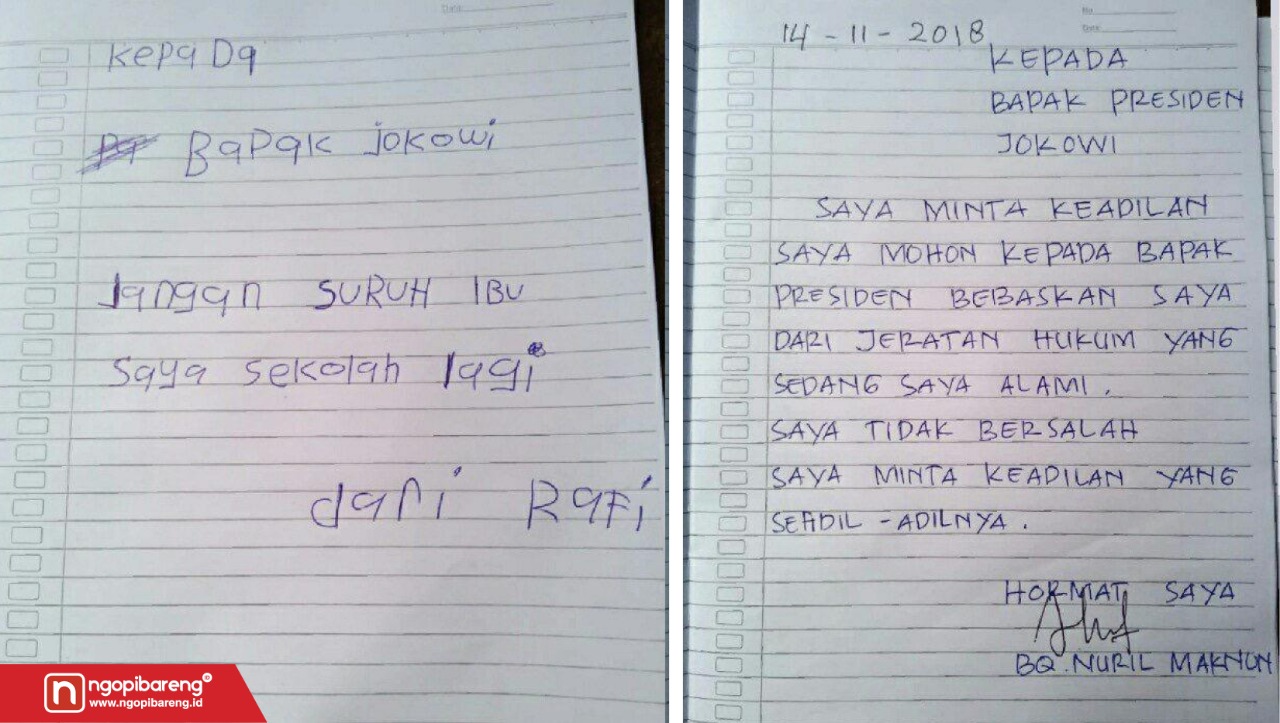 Data:
Kepada
Bapak Jokowi
Jangan SURUH IBU
Saya sekolah lagi
dari Rafi
No
Date
14 - 11 - 2018
KEPADA
BAPAK PRESIDEN
JOKOWI
SAYA MINTA KEADILAN
SAYA MOHON KEPADA BAPAK
PRESIDEN BEBASKAN SAYA
DARI JERATAN HUKUM YANG
SEDANG SAYA ALAMI.
SAYA TIDAK BERSALAH
SAYA MINTA KEADILAN YANG
SEADIL - ADILNYA.
HORMAT SAYA
BQ. NURIL MAKNUN
n ngopibareng®
www.ngopibareng.id